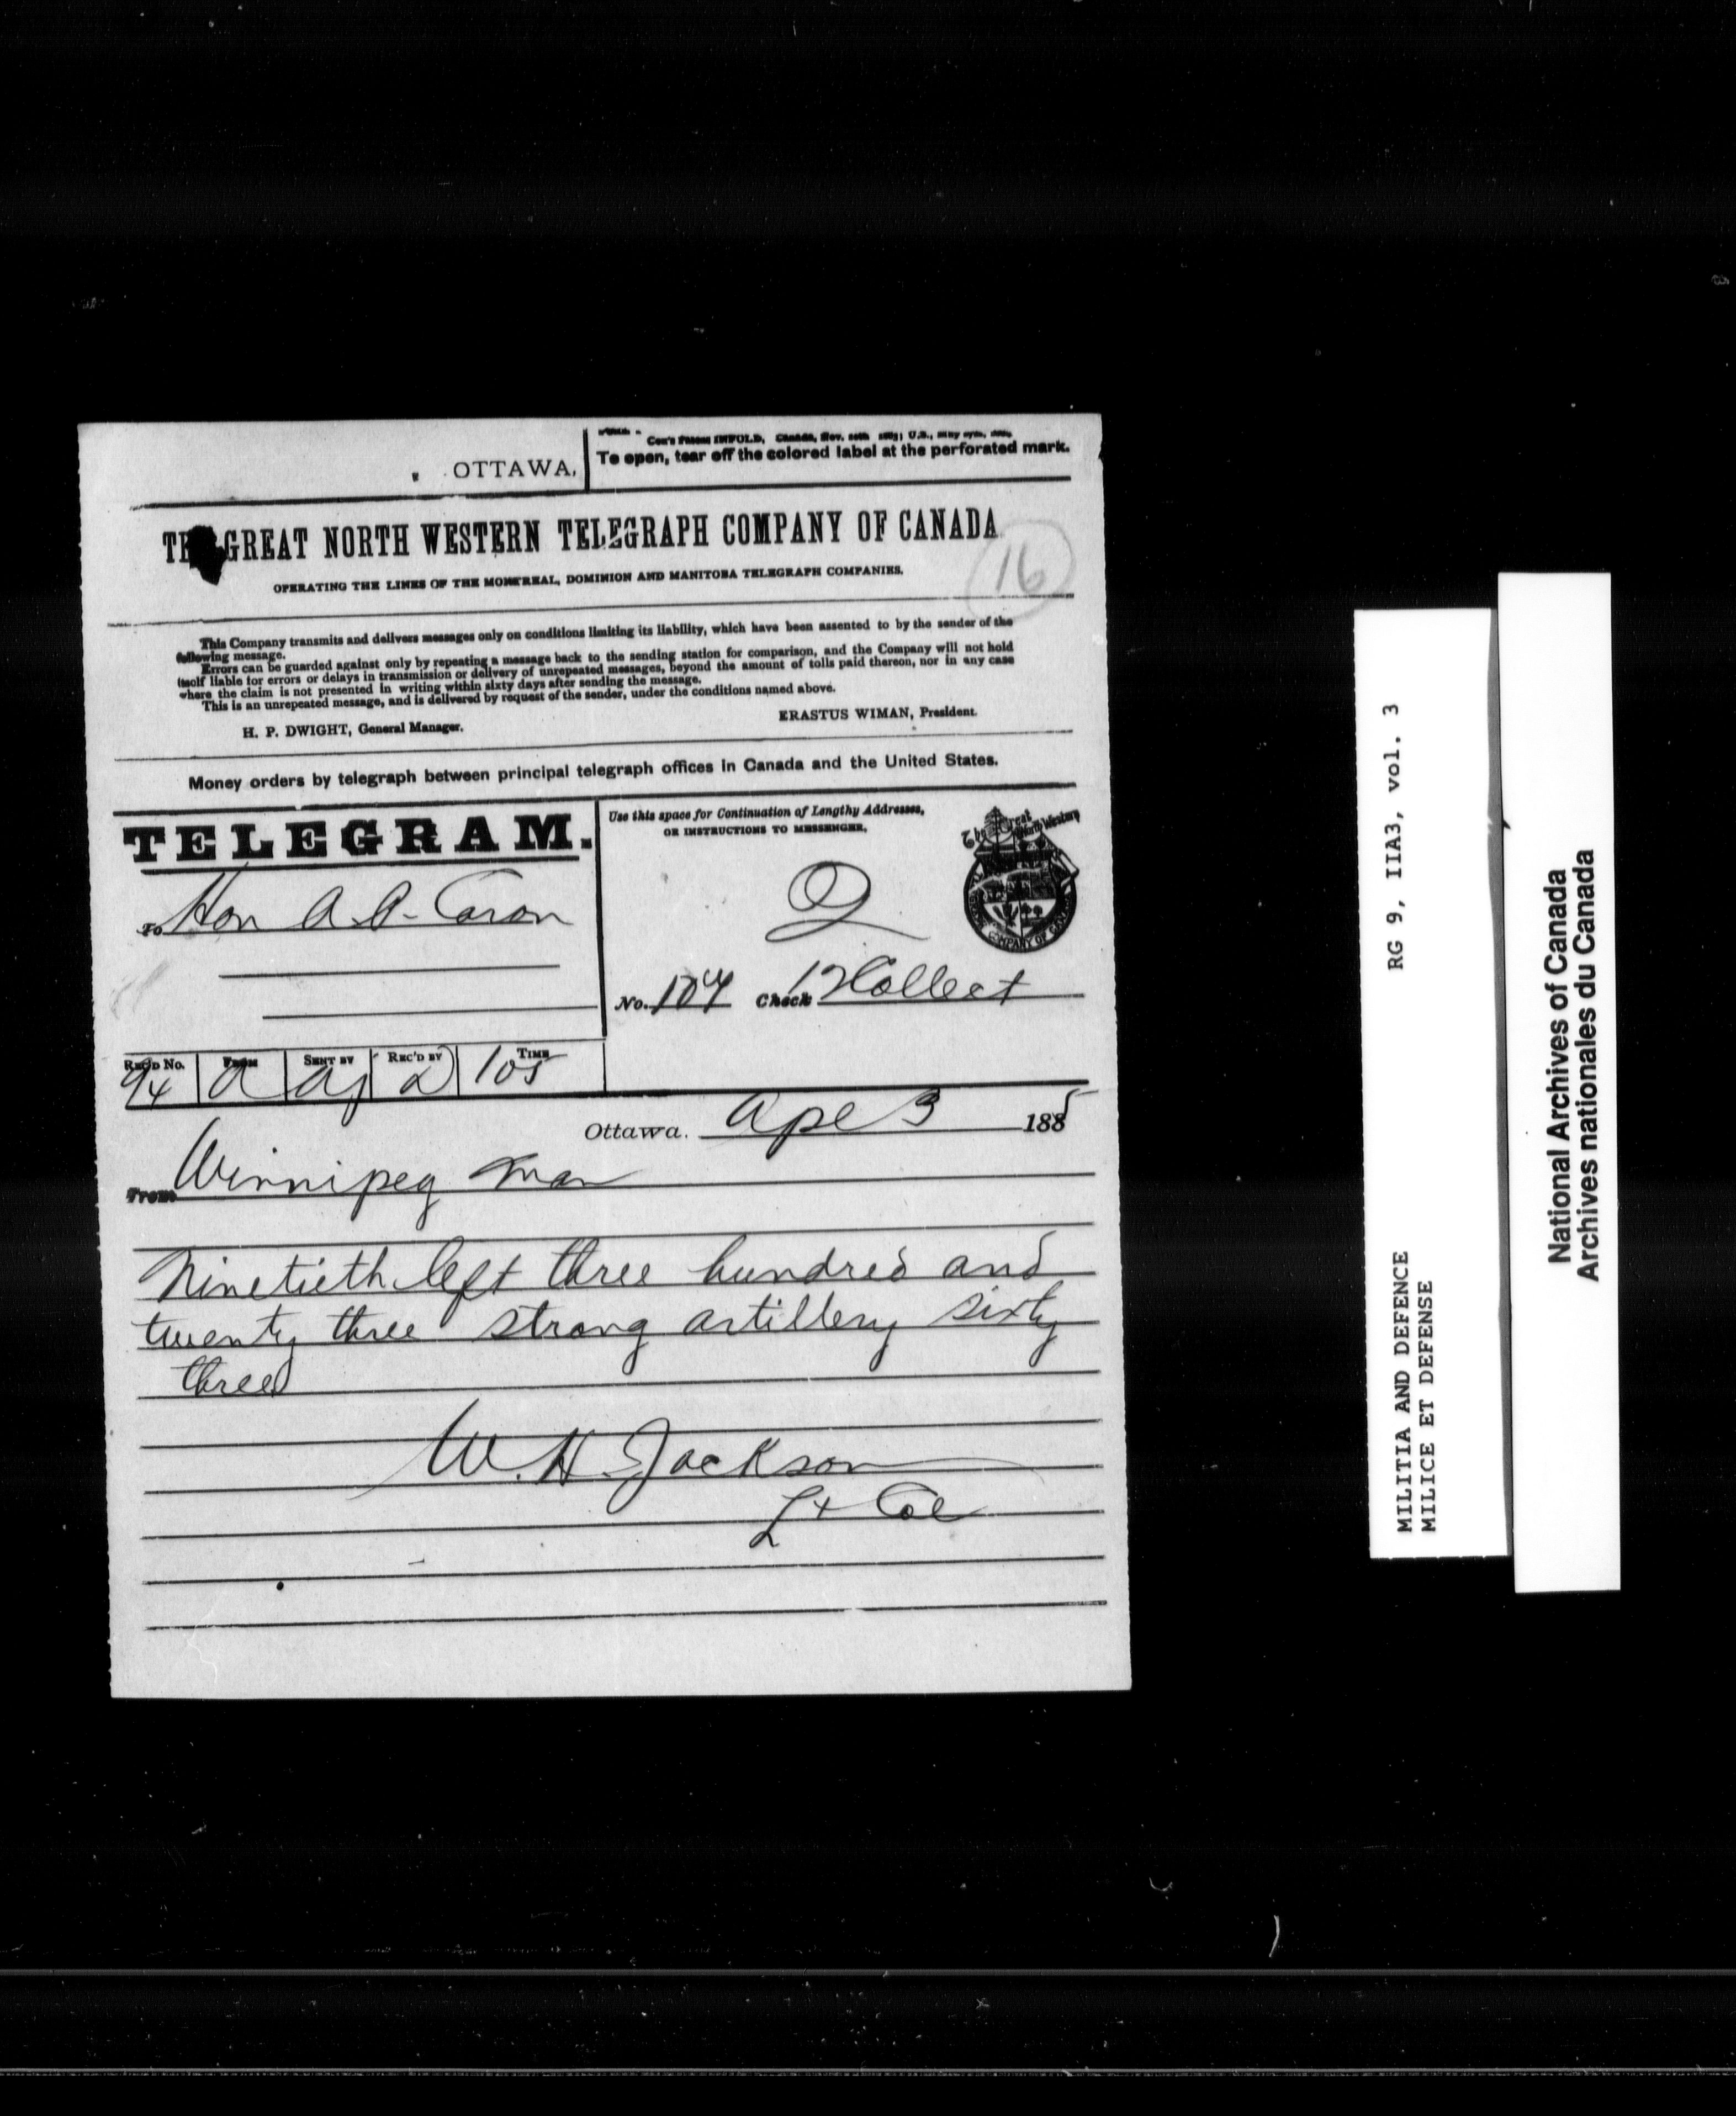 Cox's Patent INFOLD, Canada,
To open, tear off the colored label at the perforated mark.
OTTAWA,
THE GREAT NORTH WESTERN TELEGRAPH COMPANY OF CANADA
16
OPERATING THE LINES OF THE MONTREAL, DOMINION AND MANITOBA TELEGRAPH COMPANIES.
This Company transmits and delivers messages only on conditions limiting its liability, which have been assented to by the sender of the
following message.
Errors can be guarded against only by repeating a message back to the sending station for comparison, and the Company will not hold
itself liable for errors or delays in transmission or delivery of unrepeated messages, beyond the amount of tolls paid thereon, nor in any case
where the claim is not presented in writing within sixty days after sending the message.
This is an unrepeated message, and is delivered by request of the sender, under the conditions named above.
ERASTUS WIMAN, President.
H. P. DWIGHT, General Manager.
Money orders by telegraph between principal telegraph offices in Canada and the United States.
TELEGRAM.
Use this space for Continuation of Lengthy Addresses,
OR INSTRUCTIONS TO MESSENGER.
The Great North Western
COMPANY OF CANADA
To Hon A. P. Caron
No. 104 Check 12 Collect
REC'D No. FROM SENT BY REC'D BY TIME
94 a aj 105
Ottawa. Apl 3 1885
From Winnipeg Man
Ninetieth left three hundred and
twenty three strong artillery sixty
three
W. H. Jackson
Lt Col
RG 9, IIA3, vol. 3
MILITIA AND DEFENCE
MILICE ET DEFENSE
National Archives of Canada
Archives nationales du Canada